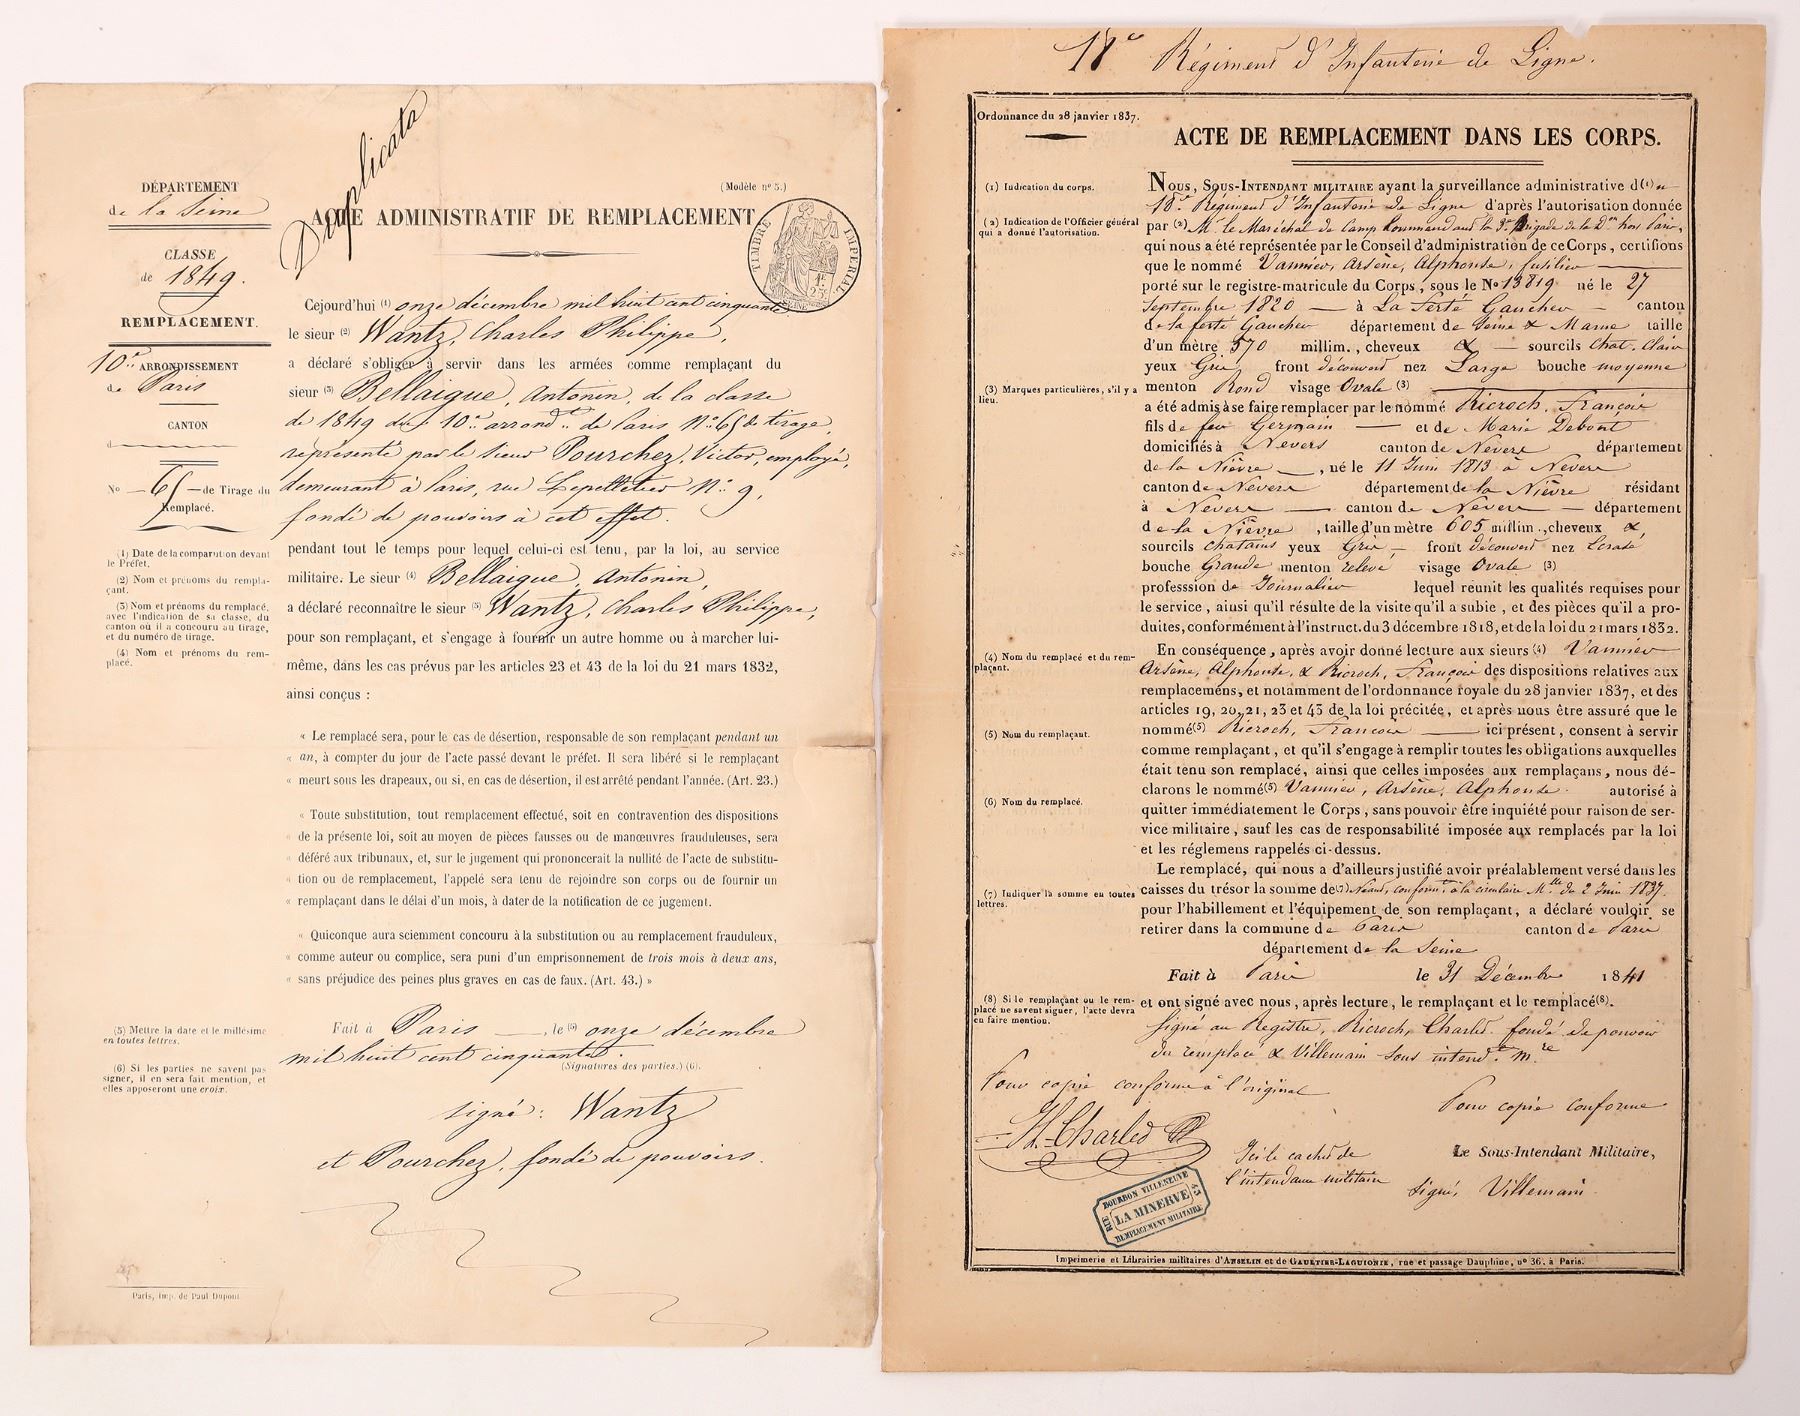 Duplicata
DÉPARTEMENT
de la Seine
CLASSE
de 1849.
REMPLACEMENT.
10e ARRONDISSEMENT
de Paris
CANTON
d
No — 65 — de Tirage du
Remplacé.
(1) Date de la comparution devant
le Préfet.
(2) Nom et prénoms du rempla-
çant.
(3) Nom et prénoms du remplacé,
avec l'indication de sa classe, du
canton où il a concouru au tirage,
et du numéro de tirage.
(4) Nom et prénoms du rem-
placé.
(5) Mettre la date et le millésime
en toutes lettres.
(6) Si les parties ne savent pas
signer, il en sera fait mention, et
elles apposeront une croix.
Paris, imp. de Paul Dupont
(Modèle no 5.)
ACTE ADMINISTRATIF DE REMPLACEMENT
TIMBRE IMPÉRIAL
1F.
25
Cejourd'hui (1) onze décembre mil huit cent cinquante
le sieur (2) Wantz, Charles Philippe,
a déclaré s'obliger à servir dans les armées comme remplaçant du
sieur (3) Bellaigue, Antonin, de la classe
de 1849 du 10e arrondt. de Paris No. 65 de tirage,
représenté par le Sieur Pourchez, Victor, employé,
demeurant à Paris, rue Lepelletier No. 9,
fondé de pouvoirs à cet effet.
pendant tout le temps pour lequel celui-ci est tenu, par la loi, au service
militaire. Le sieur (4) Bellaigue, Antonin,
a déclaré reconnaître le sieur (5) Wantz, Charles Philippe,
pour son remplaçant, et s'engage à fournir un autre homme ou à marcher lui-
même, dans les cas prévus par les articles 23 et 43 de la loi du 21 mars 1832,
ainsi conçus :
« Le remplacé sera, pour le cas de désertion, responsable de son remplaçant pendant un
« an, à compter du jour de l'acte passé devant le préfet. Il sera libéré si le remplaçant
« meurt sous les drapeaux, ou si, en cas de désertion, il est arrêté pendant l'année. (Art. 23.)
« Toute substitution, tout remplacement effectué, soit en contravention des dispositions
« de la présente loi, soit au moyen de pièces fausses ou de manœuvres frauduleuses, sera
« déféré aux tribunaux, et, sur le jugement qui prononcerait la nullité de l'acte de substitu-
« tion ou de remplacement, l'appelé sera tenu de rejoindre son corps ou de fournir un
« remplaçant dans le délai d'un mois, à dater de la notification de ce jugement.
« Quiconque aura sciemment concouru à la substitution ou au remplacement frauduleux,
« comme auteur ou complice, sera puni d'un emprisonnement de trois mois à deux ans,
« sans préjudice des peines plus graves en cas de faux. (Art. 43.) »
Fait à Paris —, le (5) onze décembre
mil huit cent cinquante.
(Signatures des parties.) (6).
signé : Wantz
et Pourchez, fondé de pouvoirs.
18e Régiment d'Infanterie de Ligne.
Ordonnance du 28 janvier 1837.
(1) Indication du corps.
(2) Indication de l'Officier général
qui a donné l'autorisation.
(3) Marques particulières, s'il y a
lieu.
(4) Nom du remplacé et du rem-
plaçant.
(5) Nom du remplaçant.
(6) Nom du remplacé.
(7) Indiquer la somme en toutes
lettres.
(8) Si le remplaçant ou le rem-
placé ne savent signer, l'acte devra
en faire mention.
ACTE DE REMPLACEMENT DANS LES CORPS.
NOUS, SOUS-INTENDANT MILITAIRE ayant la surveillance administrative d(1)u
18e Régiment d'Infanterie de Ligne d'après l'autorisation donnée
par (2) Mr le Maréchal de Camp Commandant la 3e Brigade de la Don hors Paris,
qui nous a été représentée par le Conseil d'administration de ce Corps, certifions
que le nommé Vannier, Arsène, Alphonse, fusilier —
porté sur le registre-matricule du Corps, sous le No 13819 né le 27
Septembre 1820 — à La Ferté Gaucher — canton
de la ferté Gaucher département de Seine & Marne taille
d'un mètre 570 millim., cheveux & — sourcils Chat. Clair
yeux Gris front découvert nez Large bouche moyenne
menton Rond visage Ovale (3)
a été admis à se faire remplacer par le nommé Ricroch, François
fils de feu Germain — et de Marie Debout
domiciliés à Nevers canton de Nevers département
de la Nièvre —, né le 11 Juin 1813 à Nevers
canton de Nevers département de la Nièvre résidant
à Nevers — canton de Nevers — département
de la Nièvre, taille d'un mètre 605 millim., cheveux &
sourcils Chatains yeux Gris — front découvert nez Ecrasé
bouche Grande menton relevé visage Ovale (3)
professsion de Journalier lequel réunit les qualités requises pour
le service, ainsi qu'il résulte de la visite qu'il a subie, et des pièces qu'il a pro-
duites, conformément à l'instruct. du 3 décembre 1818, et de la loi du 21 mars 1832.
En conséquence, après avoir donné lecture aux sieurs (4) Vannier
Arsène, Alphonse, & Ricroch, François des dispositions relatives aux
remplacemens, et notamment de l'ordonnance royale du 28 janvier 1837, et des
articles 19, 20, 21, 23 et 43 de la loi précitée, et après nous être assuré que le
nommé(5) Ricroch, Francois — ici présent, consent à servir
comme remplaçant, et qu'il s'engage à remplir toutes les obligations auxquelles
était tenu son remplacé, ainsi que celles imposées aux remplaçans, nous dé-
clarons le nommé(5) Vannier, Arsène, Alphonse. autorisé à
quitter immédiatement le Corps, sans pouvoir être inquiété pour raison de ser-
vice militaire, sauf les cas de responsabilité imposée aux remplacés par la loi
et les réglemens rappelés ci-dessus.
Le remplacé, qui nous a d'ailleurs justifié avoir préalablement versé dans les
caisses du trésor la somme de(7) Néant, conformt à la circulaire Mlle du 2 Juin 1837.
pour l'habillement et l'équipement de son remplaçant, a déclaré vouloir se
retirer dans la commune de Paris canton de Paris
département de la Seine
Fait à Paris le 31 Décembre 1841
et ont signé avec nous, après lecture, le remplaçant et le remplacé(8).
Signé au Registre, Ricroch, Charled fondé de pouvoir
du remplacé & Villemain Sous intendt mre
Pour copie conforme à l'original
H. Charled
Pour copie conforme
Ici le cachet de
l'intendance militaire
Le Sous-Intendant Militaire,
Signé, Villemain.
RUE BOURBON VILLENEUVE
LA MINERVE
REMPLACEMENT MILITAIRE
Imprimerie et Librairies militaires d'ANSELIN et de GAULTIER-LAGUIONIE, rue et passage Dauphine, no 36, à Paris.